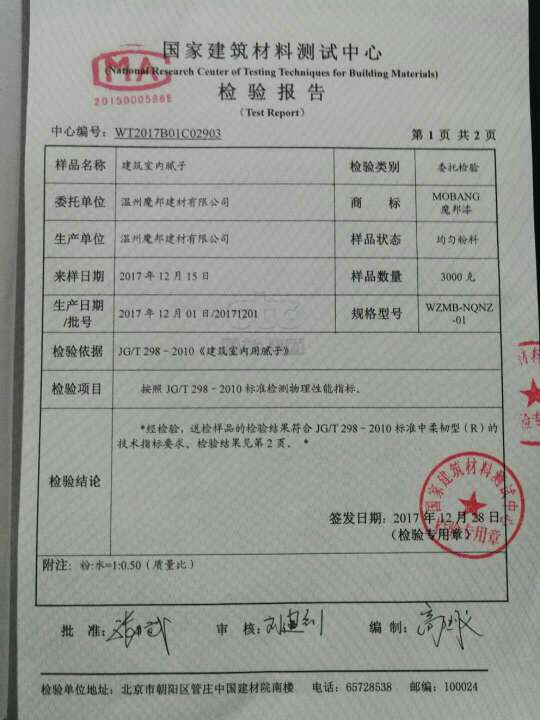 国家建筑材料测试中心
MA
(National Research Center of Testing Techniques for Building Materials)
2015000586E
检验报告
(Test Report)
中心编号：WT2017B01C02903
第 1 页 共 2 页
样品名称 建筑室内腻子 检验类别 委托检验
委托单位 温州魔邦建材有限公司 商 标 MOBANG 魔邦漆
生产单位 温州魔邦建材有限公司 样品状态 均匀粉料
来样日期 2017 年 12 月 15 日 样品数量 3000 克
生产日期/批号 2017 年 12 月 01 日/20171201 规格型号 WZMB-NQNZ-01
检验依据 JG/T 298－2010《建筑室内用腻子》
检验项目 按照 JG/T 298－2010 标准检测物理性能指标。
检验结论
*经检验，送检样品的检验结果符合 JG/T 298－2010 标准中柔韧型（R）的
技术指标要求。检验结果见第 2 页。 *
国家建筑材料测试中心
检验专用章
签发日期：2017 年 12 月 28 日
（检验专用章）
附注：粉:水=1:0.50（质量比）
批 准：
审 核：
编 制：
检验单位地址：北京市朝阳区管庄中国建材院南楼 电话：65728538 邮编：100024